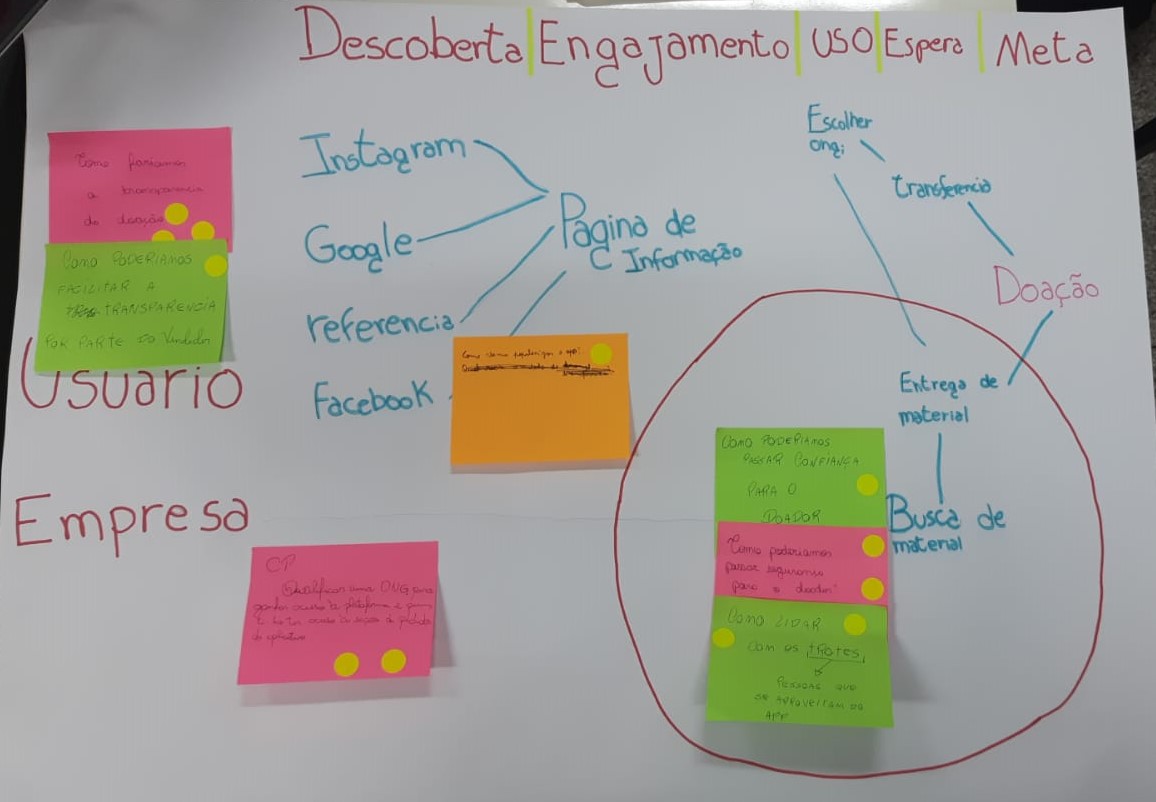 Descoberta Engajamento USO Espera Meta
Como
a transparencia
da doação
COMO PODERIAMOS
FACILITAR A
TRANSPARENCIA
POR PARTE DO Vendedor
Usuario
Empresa
Instagram
Google
referencia
Facebook
Pagina de
Informação
Escolher
ong;
transferencia
Doação
Entrega de
material
Busca de
material
COMO PODERIAMOS
PASSAR CONFIANÇA
PARA O
DOADOR
Como poderiamos
passar seguranso
para o doador
COMO LIDAR
COM OS TROTES,
PESSOAS QUE
SE APROVEITAM DO
APP
CP
Qualificar uma ONG para
ganhar acesso a plataforma e
do aplicativo